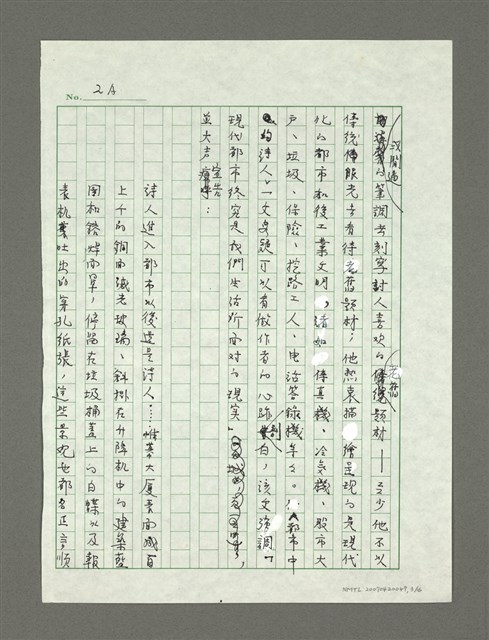 No. 2A
的筆調去刻寫討人喜歡的老舊題材——至少他不以
傳統眼光去看待老舊題材；他熱衷描繪呈現的是現代
化的都市和後工業文明，諸如傳真機、冷氣機、股市大
戶、垃圾、保險、挖路工人、電話答錄機等々。「都市中
的詩人」一文更可以看做作者的心跡剖白，該文強調「
現代都市終究是我們生活所面對的現實」，
並大声宣告：
詩人進入都市以後還是詩人……帷幕大廈表面成百
上千的鋼面滅光玻璃，斜掛在升降机中的建築藍
圖和鎔焊面罩，停留在垃圾桶蓋上的白蝶以及報
表机裏吐出的穿孔紙張，這些景況也都名正言順
NMTL 20090420049, 3/6